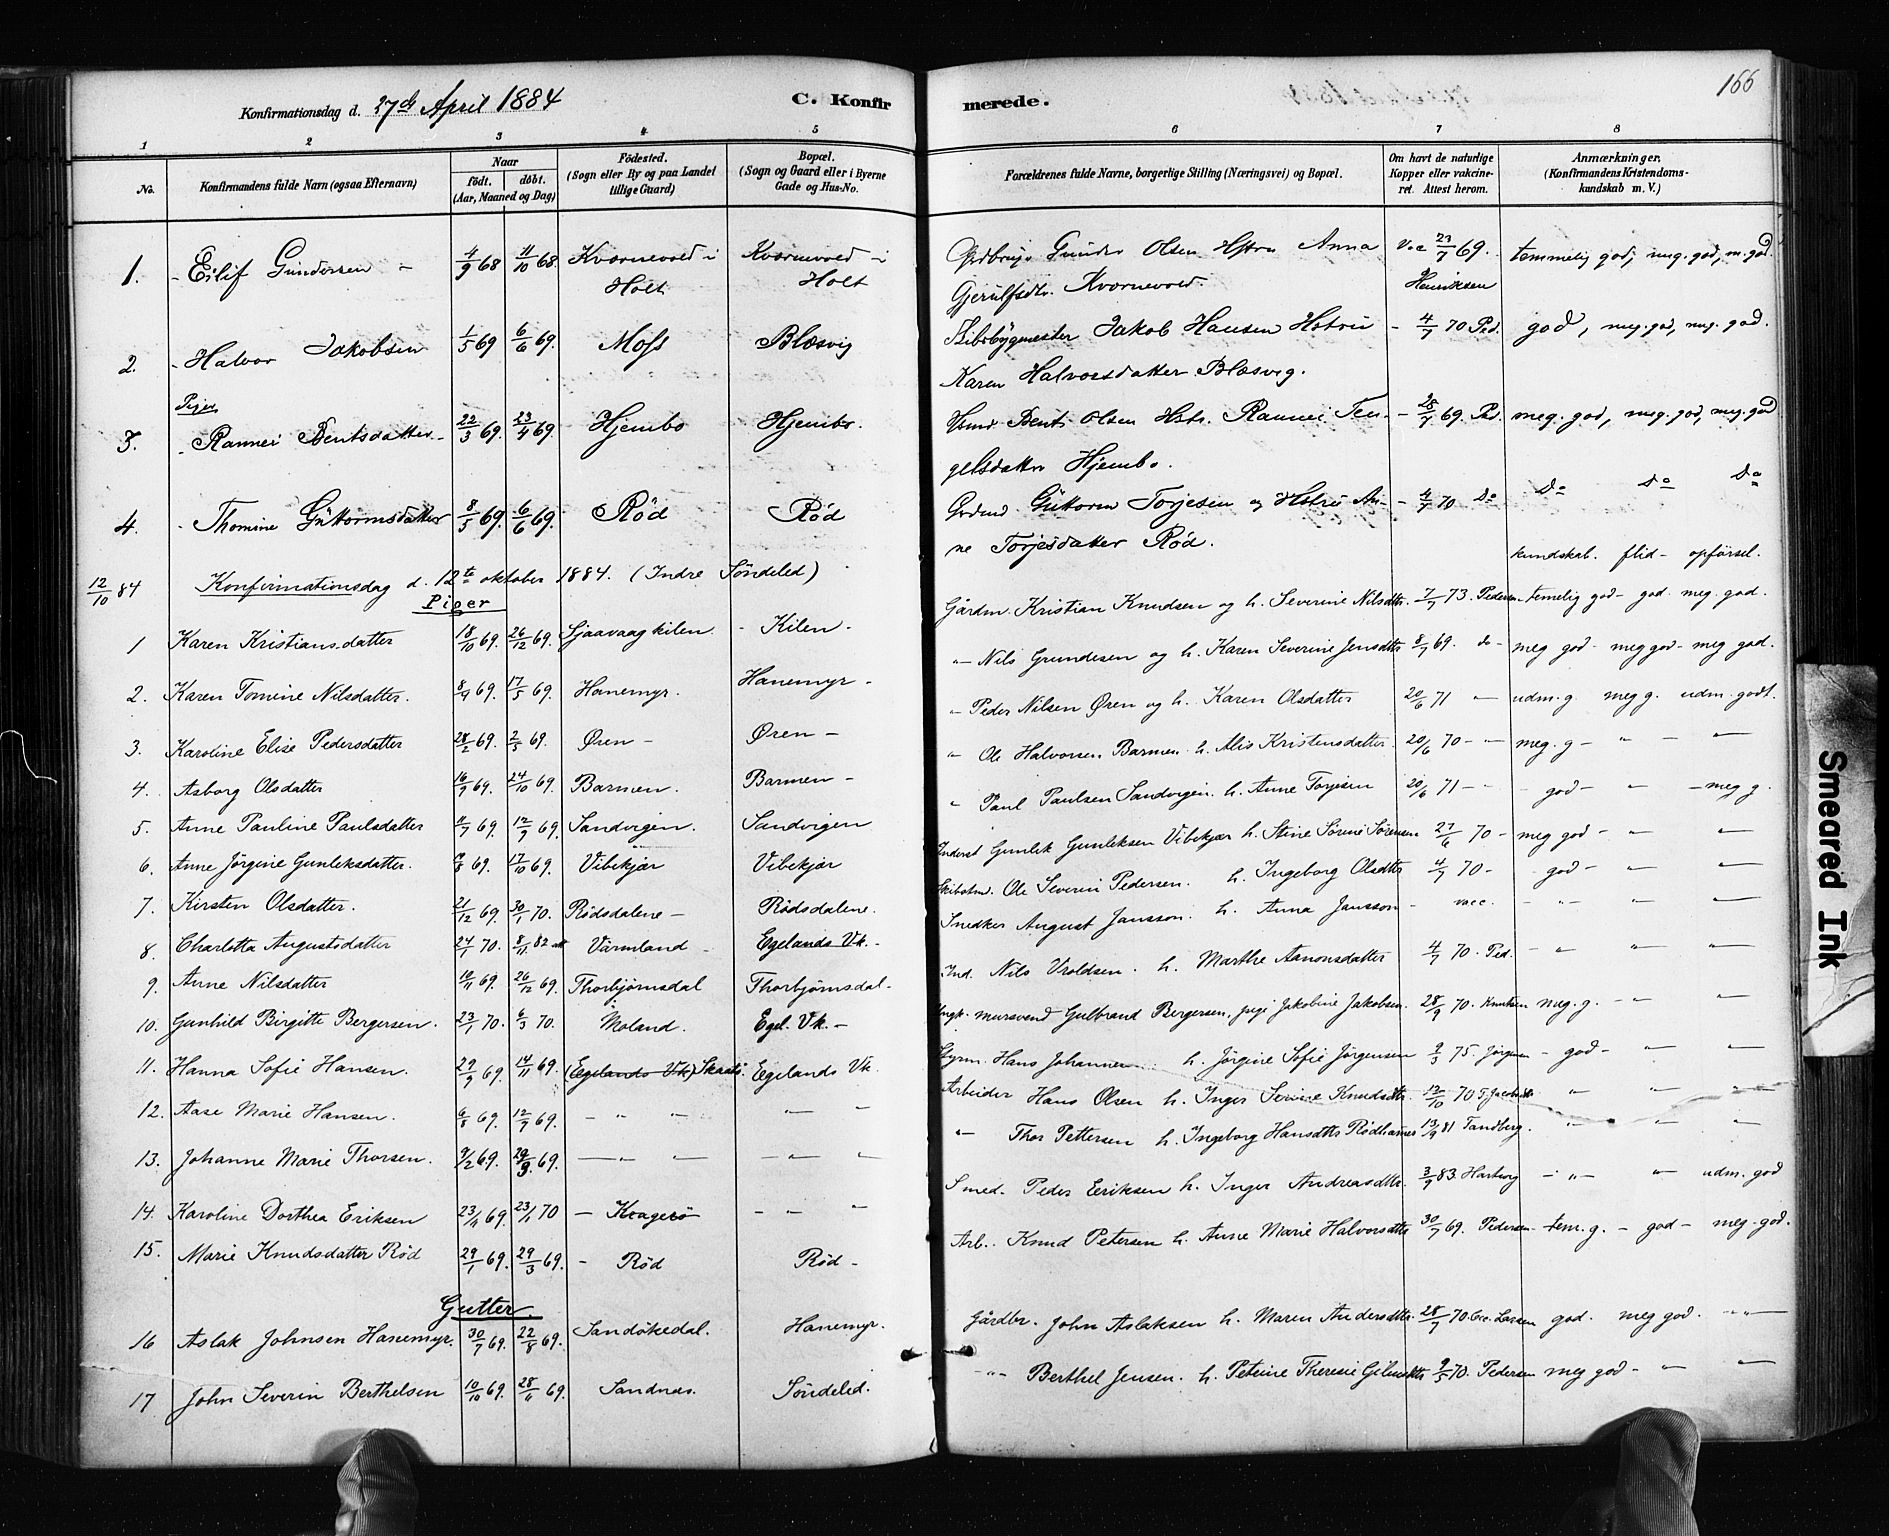 166
Konfirmationsdag d. 27de April 1884 C. Konfirmerede.
1 2 3 4 5 6 7 8
No. Konfirmandens fulde Navn (ogsaa Efternavn) Naar født. døbt. (Aar, Maaned og Dag) Födested. (Sogn eller By og paa Landet tillige Gaard) Bopæl. (Sogn og Gaard eller i Byerne Gade og Hus-No. Forældrenes fulde Navne, borgerlige Stilling (Næringsvei) og Bopæl. Om havt de naturlige Kopper eller vakcineret. Attest herom. Anmærkninger. (Konfirmandens Kristendomskundskab m. V.)
1. Eilif Gundersen 4/9 68 11/10 68. Kvornevold i Holt Kvornevold i Holt Gunder Olsen Hstru Anna Gjerulfsdtr. Kvornevold. Vac 23/7 69. Henriksen temmelig god, meg. god, m. god.
2. Halvor Jakobsen 1/5 69 6/6 69. Moss Blæsvig Skibsbygmester Jakob Hansen Hstru Karen Halvorsdatter Blæsvig. 4/7 70 Ped. god, meg. god, meg. god.
Piger
3. Rannei Bentsdatter 22/3 69. 23/4 69. Hjembo Hjembo. Husmd. Bent Olsen Hstr. Rannei Tengelsdatter Hjembo. 25/7 69. Ped. meg. god, meg. god, meg. god
4. Thomine Guttormsdatter 8/5 69. 6/6 69. Röd Röd Grdmd. Guttorm Torjesen og Hstru Anne Torjesdatter Röd. 4/7 70 Do Do Do Do
kundskab. flid - opförsel.
12/10 84 Konfirmationsdag d. 12te oktober 1884. (Indre Söndeled)
Piger
1 Karen Kristiansdatter 18/10 69. 26/12 69. Sjaavaag kilen. Kilen. Gårdm. Kristian Knudsen og h. Severine Nilsdtr. 7/7 73. Pedersen temelig god - god. meg. god.
2. Karen Tomine Nilsdatter. 8/4 69. 17/5 69. Hanemyr. Hanemyr - " Nils Grundesen og h. Karen Severine Jensdtr 8/7 69. do - meg god - meg god - meg god.
3. Karoline Elise Pedersdatter 28/2 69. 2/5 69. Øren - Øren - " Peder Nilsen Øren og h. Karen Olsdatter 20/6 71 " udm. g. meg g. udm. godt.
4. Asborg Olsdatter 16/9 69. 24/10 69. Barmen. Barmen - " Ole Halvorsen Barmen h. Alis Kristensdatter. 20/6 70 - " meg. g - " - "
5. Anne Pauline Paulsdatter 11/7 69. 12/9 69. Sandvigen. Sandvigen " Paul Paulsen Sandvigen. h. Anne Torjesen 20/6 71 - " - god - " - meg g.
6. Anne Jörgine Gunleksdatter. 9/8 69. 17/10 69. Vibekjær Vibekjær Inderst Gunlek Gunleksen Vibekjær h. Stine Sörine Sörensen 27/6 70 - meg god - " "
7. Kirsten Olsdatter. 21/12 69. 30/1 70. Rödsdalene - Rödsdalene. Ole Severin Pedersen. h. Ingeborg Olsdtr 4/7 70 - - god - " "
8. Charlotta Augustsdatter 24/1 70. 8/11 82 Värmland - Egelands Vk. - Snedker August Jansson. h. Anna Jansson - vacc. - " - " "
9. Anne Nilsdatter 10/11 69. 26/12 69. Thorbjörnsdal Thorbjörnsdal - Ind. Nils Vroldsen. h. Marthe Aanonsdatter 4/7 70. Ped. - " " "
10. Gunhild Birgitte Bergersen. 23/1 70. 6/3 70. Moland. Egel. Vk. - Ungk. mursvend Gulbrand Bergersen, pige Jakobine Jakobsen. 28/9 70. Knutsen meg. g. - " "
11. Hanna Sofie Hansen. 29/9 69. 14/11 69. (Egelands Vk) Skaatö. Egelands Vk. Styrm. Hans Johannesen h. Jörgine Sofie Jörgensen 2/3 75. Jörgensen - god - " "
12. Aase Marie Hansen. 6/8 69. 12/9 69. - " " " Arbeider Hans Olsen h. Inger Serine Knudsdtr 12/10 70 " " "
13. Johanne Marie Thorsen. 9/2 69. 29/3 69. " " - " " " Thor Pettersen h. Ingeborg Hansdtr Rödhamer 13/9 81 Tandberg. " " "
14. Karoline Dorthea Eriksen 23/11 69. 23/1 70 - Kragerö - " " Smed. Peder Eriksen h. Inger Andreasdtr. 3/9 83. Hartvig - " - " udm. god
15. Marie Knudsdatter Röd 29/1 69. 29/3 69. - Röd Röd - Arb. Knud Petersen h. Anne Marie Halvorsdtr 30/7 69. Pedersen - tem. g. - god - meg. god.
Gutter
16 Aslak Johnsen Hanemyr. 30/7 69. 22/8 69. Sandökedal. Hanemyr. Gårdbr. John Aslaksen h. Maren Andersdtr. 28/7 70. Lassen god. meg god. " "
17 John Severin Berthelsen 10/10 69. 28/11 69. Sandnæs. Söndeled. " Berthel Jensen. h. Peteine Theresie 2/5 70. Pedersen meg god - " "
Smeared Ink